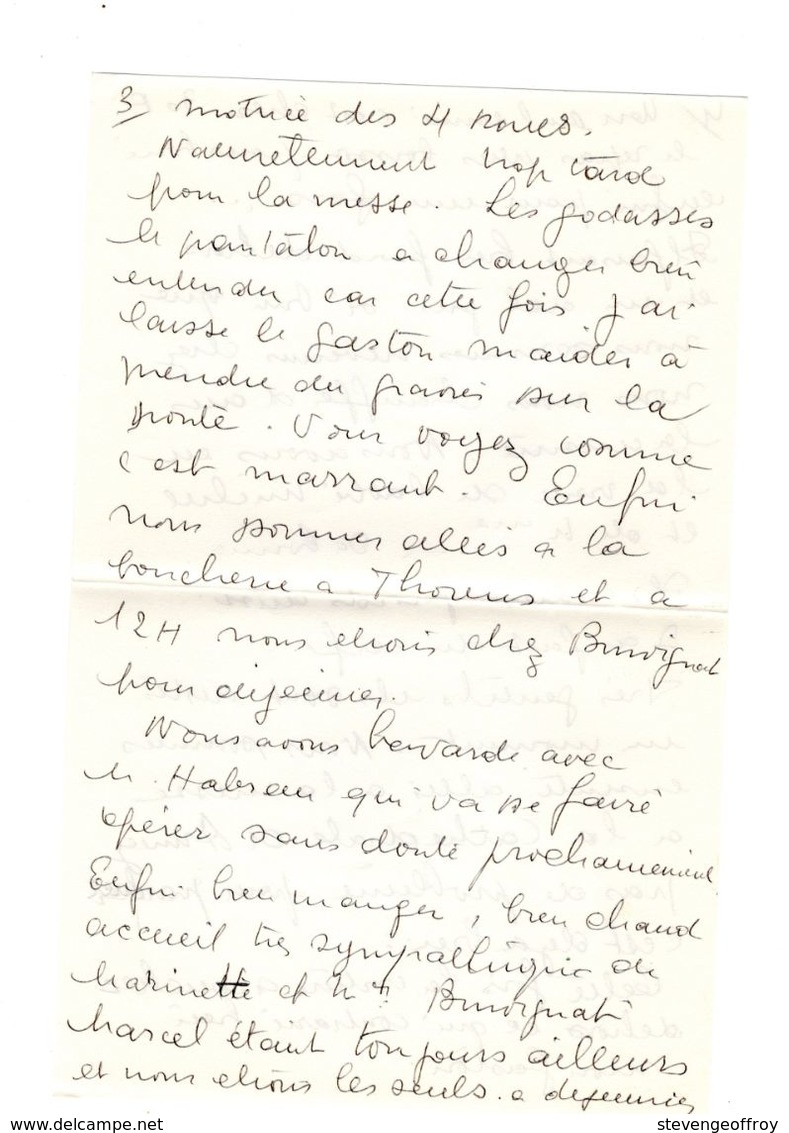 3/ motricé des 4 roues.
Naturellement trop tard
pour la messe. Les godasses
le pantalon a changer bien
entendu car cette fois j'ai
laissé le gaston marder à
prendre du gravis sur la
route. Vous voyez comme
c'est marrant. Enfin
nous sommes allés a la
boucherie a Thorens et a
12H nous etions chez Buvignat
pour dejeuner.
Nous avons bavardé avec
M. Habseau qui va se faire
opérer sans doute prochainement
Enfin bien manger, bien chaud
accueil très sympathique de
Marinette et Mr Buvignat
Marcel étant toujours ailleurs
et nous etions les seuls a dejeuner
stevengeoffroy